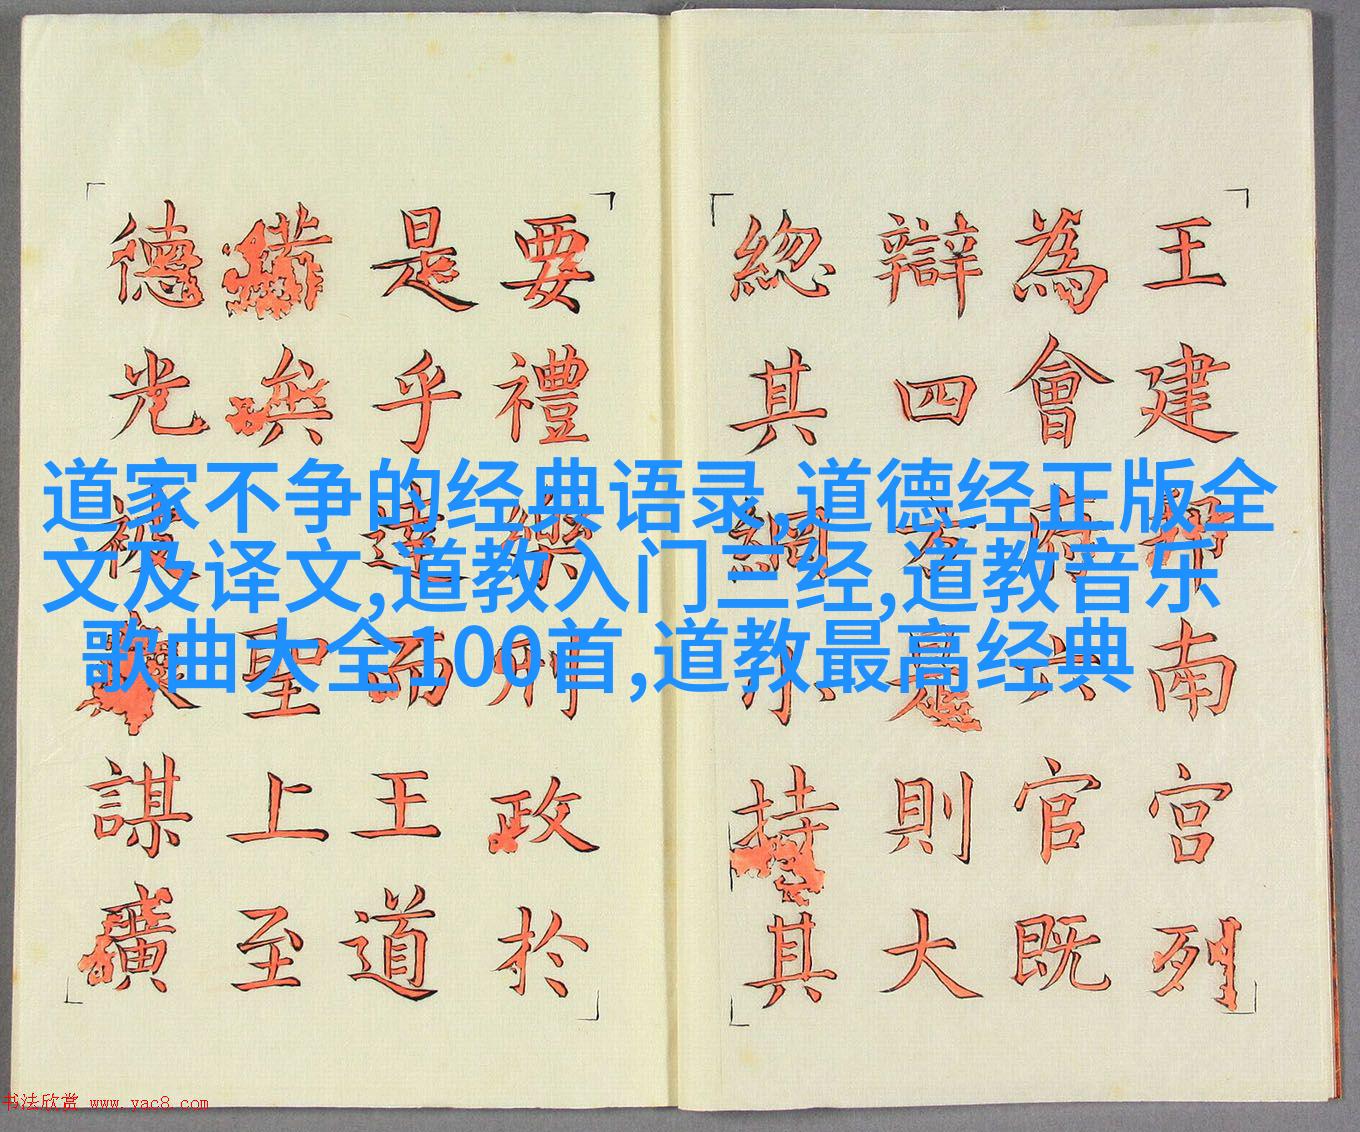 王建邦南宮列
為會府六官既
辯四方是則大
緫其綱小持其
要禮樂刑政於
是乎達而王道
備矣聖上至
德光被睿謀廣
道家不争的经典语录,道德经正版全
文及译文,道教入门三经,道教音乐
歌曲大全100首,道教最高经典
书法欣赏 www.yac8.com